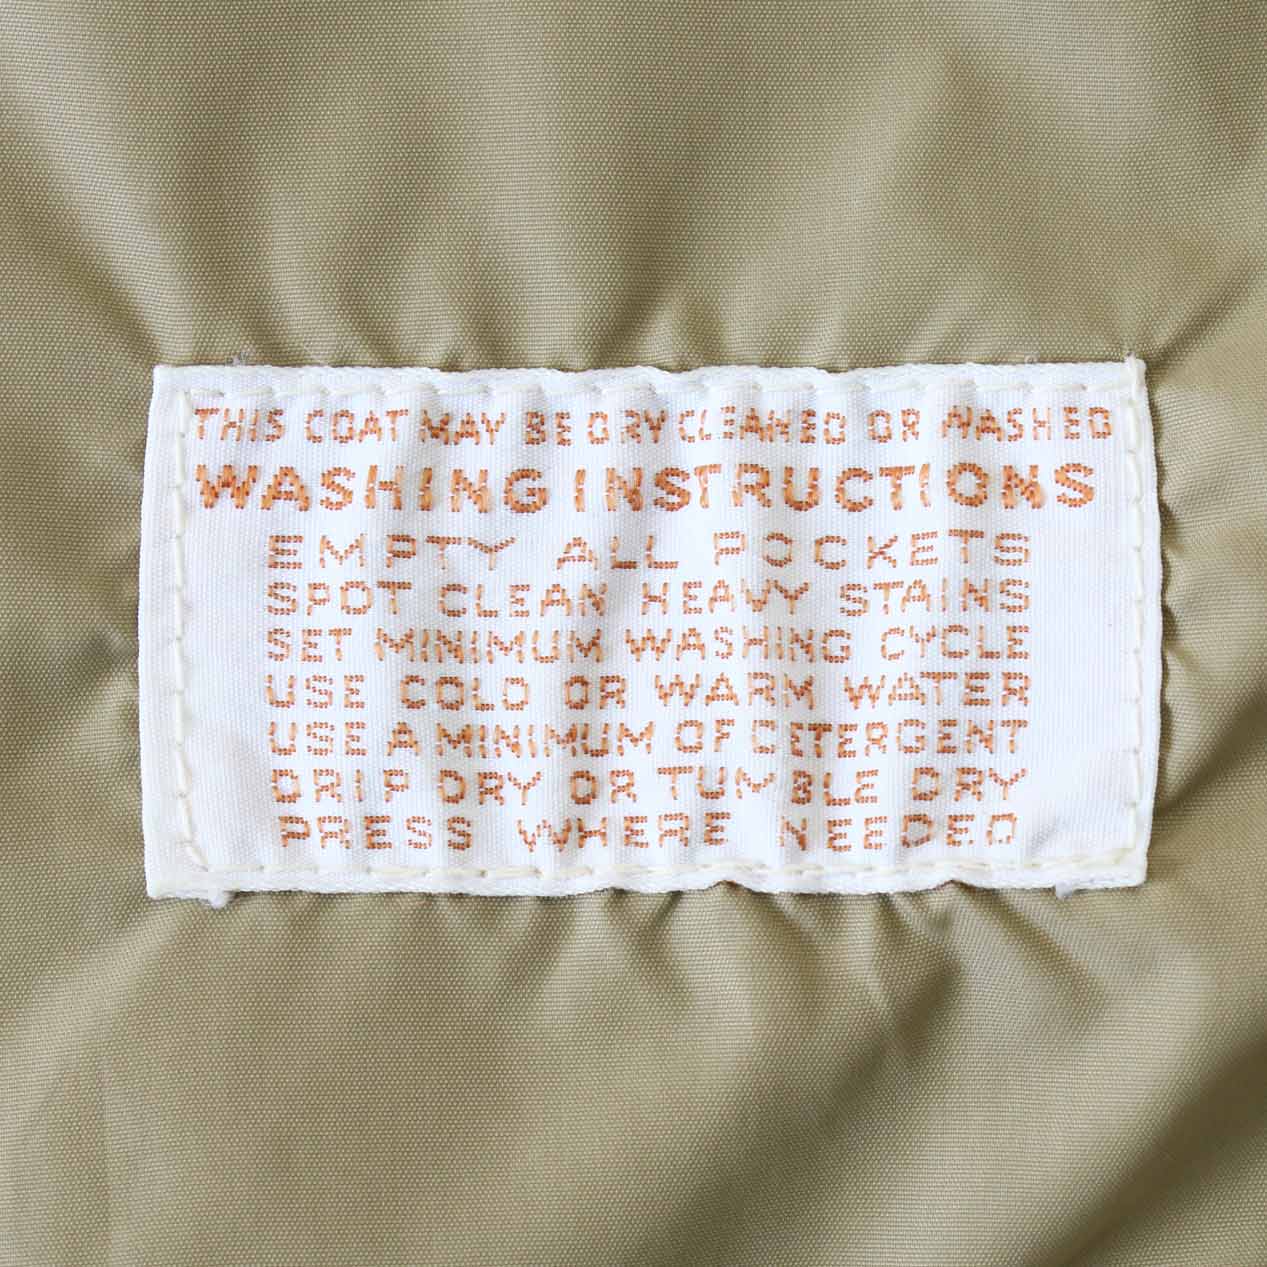 THIS COAT MAY BE DRY CLEANED OR WASHED
WASHING INSTRUCTIONS
EMPTY ALL POCKETS
SPOT CLEAN HEAVY STAINS
SET MINIMUM WASHING CYCLE
USE COLD OR WARM WATER
USE A MINIMUM OF DETERGENT
DRIP DRY OR TUMBLE DRY
PRESS WHERE NEEDED